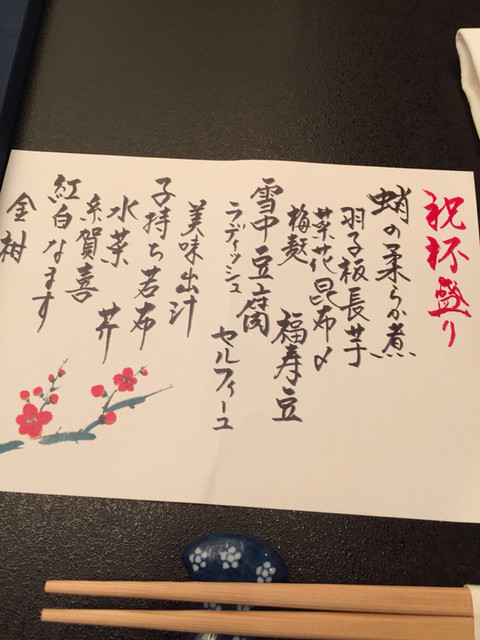 祝杯盛り
蛸の柔らか煮
羽子板長芋
菜花昆布〆
梅麩 福寿豆
雪中豆腐
ラディッシュ セルフィーユ
美味出汁
子持ち若布
水菜 芹
糸賀喜
紅白なます
金柑